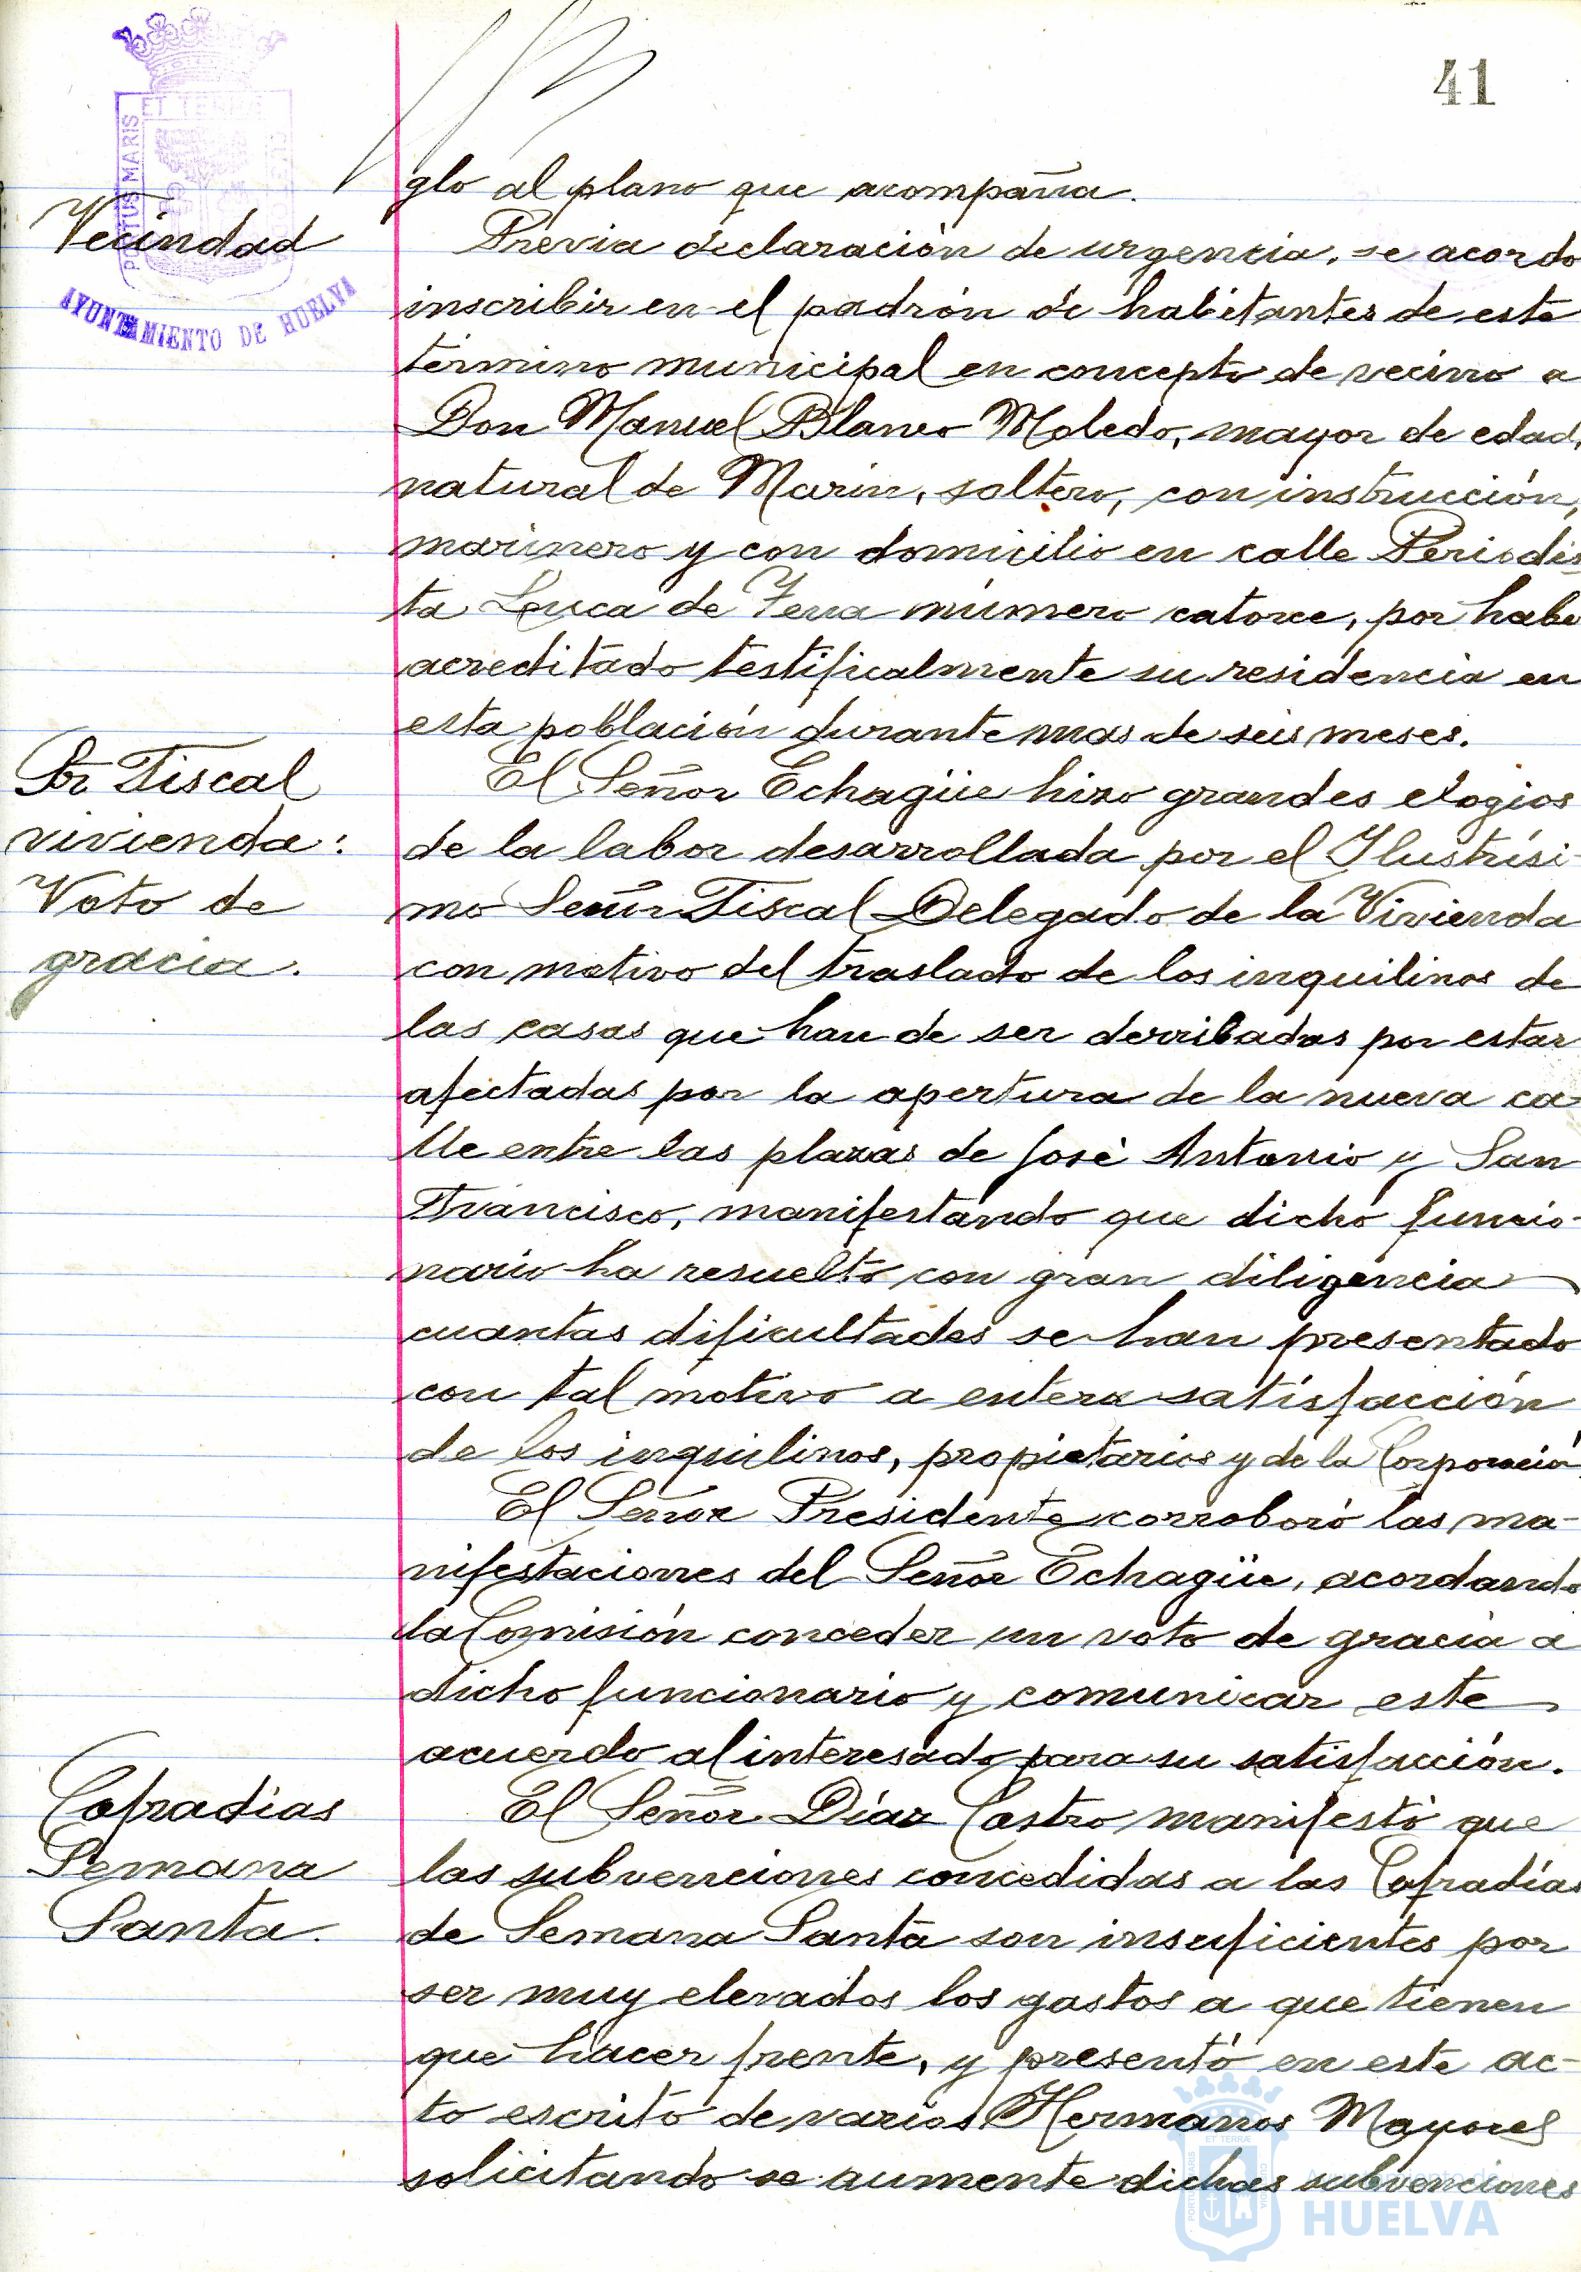 41
glo al plano que acompaña.
Vecindad
Previa declaración de urgencia, se acordo
inscribir en el padrón de habitantes de este
término municipal en concepto de vecino a
Don Manuel Blanco Moledo, mayor de edad,
natural de Marin, soltero, con instrucción,
marinero y con domicilio en calle Periodis
ta Luca de Tena número catorce, por habe
acreditado testificalmente su residencia en
esta población durante mas de seis meses.
Sr Fiscal
vivienda:
Voto de
gracia.
El Señor Echagüe hizo grandes elogios
de la labor desarrollada por el Ilustrísi-
mo Señor Fiscal Delegado de la Vivienda
con motivo del traslado de los inquilinos de
las casas que han de ser derribadas por estar
afectadas por la apertura de la nueva ca-
lle entre las plazas de José Antonio y San
Francisco, manifestando que dicho funcio-
nario ha resuelto con gran diligencia
cuantas dificultades se han presentado
con tal motivo a entera satisfacción
de los inquilinos, propietarios y de la Corporación
El Señor Presidente corroboró las ma-
nifestaciones del Señor Echagüe, acordando
la Comisión conceder un voto de gracia a
dicho funcionario y comunicar este
acuerdo al interesado para su satisfacción.
Cofradias
Semana
Santa.
El Señor Díaz Castro manifestó que
las subvenciones concedidas a las Cofradías
de Semana Santa son insuficientes por
ser muy elevados los gastos a que tienen
que hacer frente, y presentó en este ac-
to escrito de varios Hermanos Mayores
solicitando se aumente dichas subvenciones
PORTUS MARIS ET TERRÆ CUSTODIA
AYUNTAMIENTO DE HUELVA
Ayuntamiento de
HUELVA